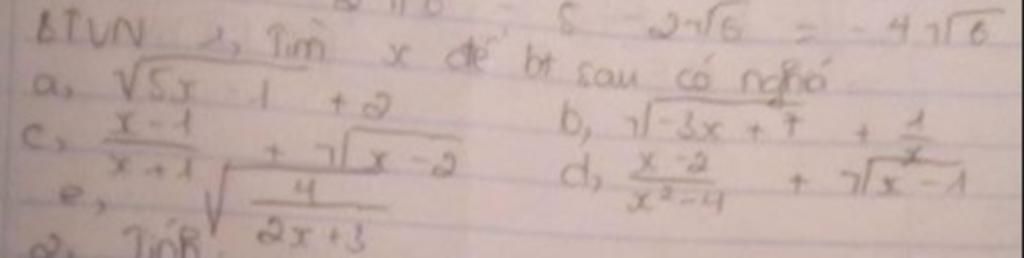 5 - 2√6 = - 4√6
BTVN 1, Tìm x để bt sau có nghĩa
a, √5x - 1 + 2
b, √-3x + 7 + 1/x
c, x-1/x+1 + √x-2
d, x-2/x²-4 + √x-1
e, √4/2x+3
2, Tính